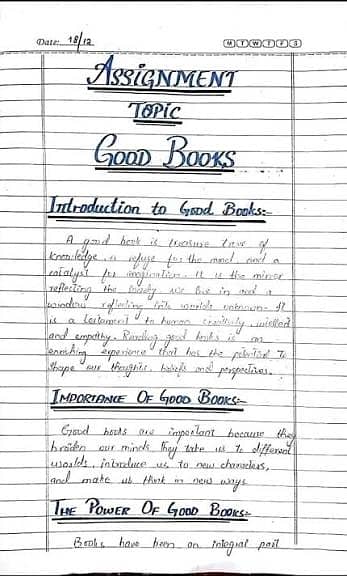 Date: 18/12
M T W T F S
ASSIGNMENT
TOPIC
GOOD BOOKS
Introduction to Good Books:-
A good book is treasure trove of
knowledge, a refuge for the mind, and a
catalyst for imagination. It is the mirror
reflecting the we live in and a
window reflecting into worlds unknown. It
is a testament to human creativity, intellect
and empathy. Reading good books is an
enriching experience that has the potential To
shape our thoughts, beliefs and perspectives.
IMPORTANCE OF GOOD BOOKS:-
Good books are important because they
broaden our minds they take us to different
worlds, introduce us to new characters,
and make us think in new ways
THE POWER OF GOOD BOOKS:-
Books have been an integral part